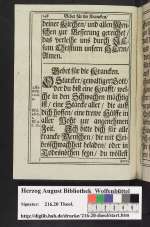 126 Gebet für die Krancken/
deiner Kirchen/ und allen Menschen
zur Besserung gereichet/
das verleihe uns durch JEsum
Christum unsern HErrn/
Amen.
Gebet für die Krancken.
Starcker/gewaltiger Gott/
der du bist eine Krafft/ welche
in den Schwachen mächtig
ist/ eine Stärcke aller/ die auf
dich hoffen/ eine treue Hülffe in
aller Noht zur angenehmen
Zeit. Ich bitte dich für alle
krancke Menschen/ die mit Leibesschwachheit
beladen/ oder in
Todesnöhten seyn/ du wöllest
Herzog August Bibliothek Wolfenbüttel
Signatur: 216.20 Theol.
http://diglib.hab.de/drucke/216-20-theol/start.htm